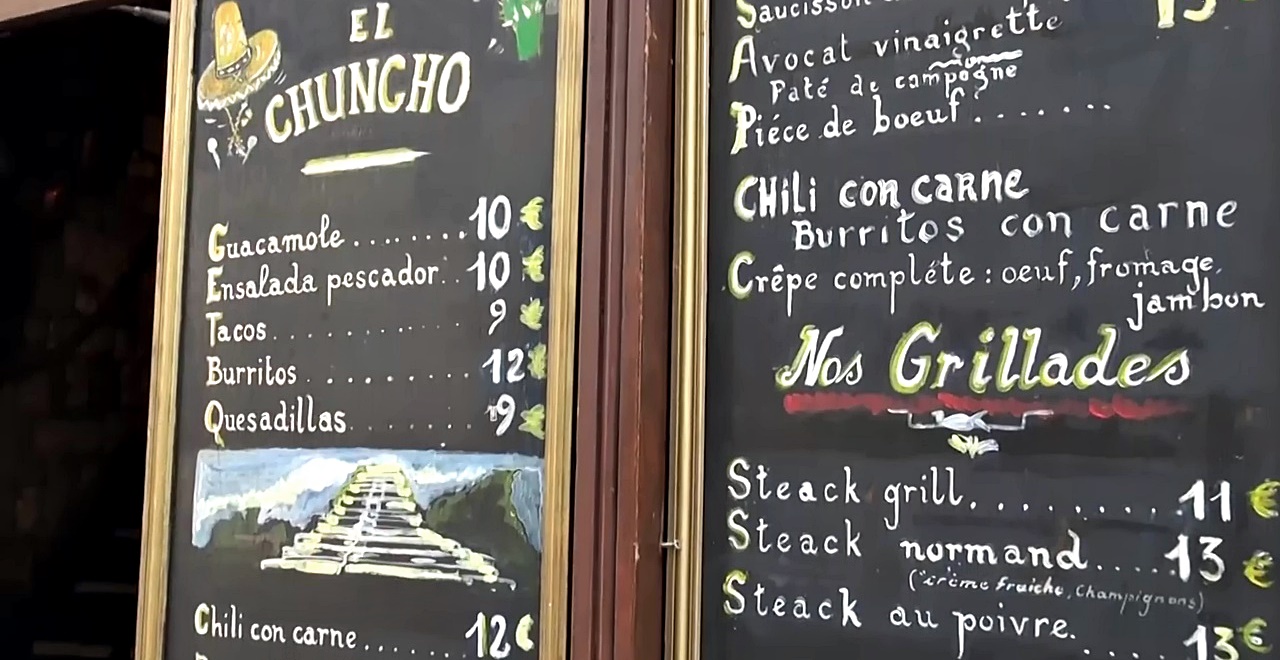 EL
CHUNCHO
Guacamole........10 €
Ensalada pescador..10 €
Tacos............9 €
Burritos..........12 €
Quesadillas........9 €
Chili con carne.......12 €
Saucisson
Avocat vinaigrette
Paté de campagne
Piéce de boeuf.......
CHili con carne
Burritos con carne
Crêpe compléte: oeuf, fromage,
jambon
Nos Grillades
Steack grill.........11 €
Steack normand.....13 €
(crème fraiche, Champignons)
Steack au poivre.
....13 €